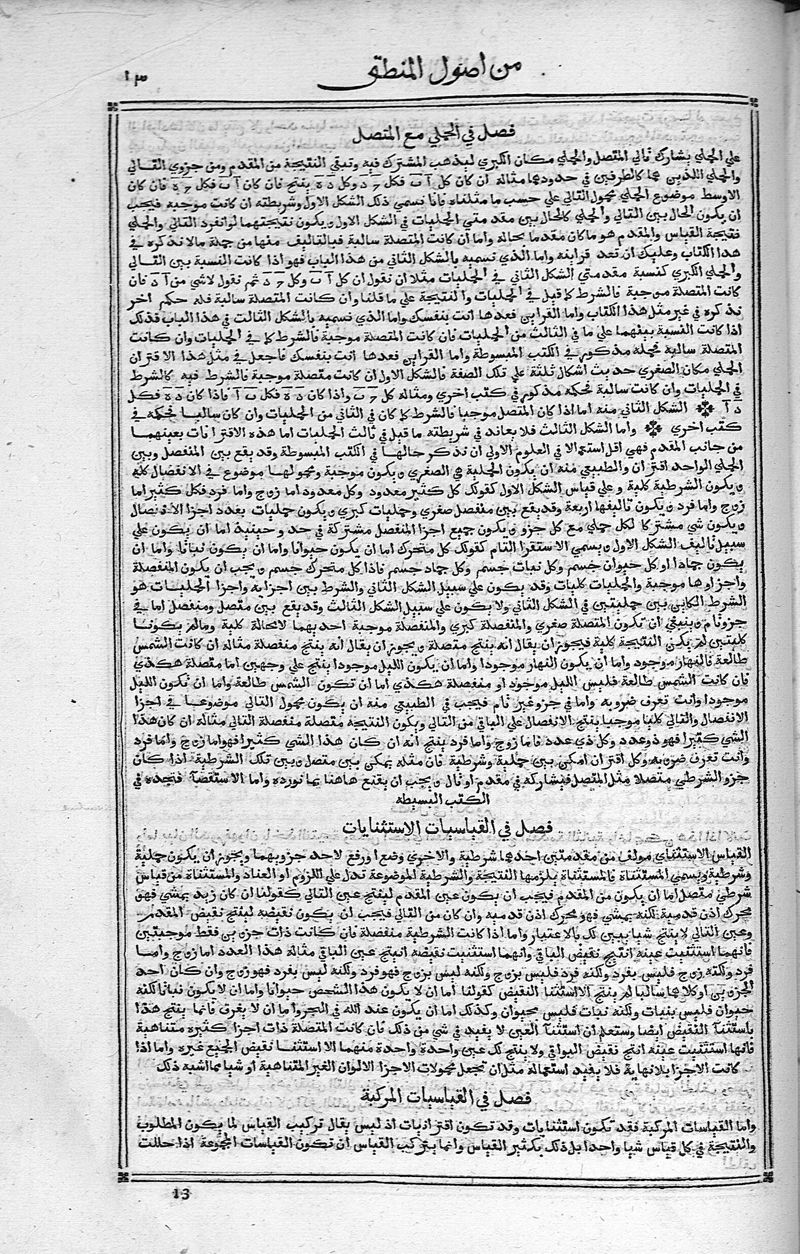 من اصول المنطق ١٣
فصل في الحملي مع المتصل
علي الحملي يشاركه تالي المتصل والحملي مكان الكبري ليذهب المشترك فيه وتبقي النتيجة من المقدم ومن جزوي التالي
والحملي اللذين هما كالطرفين في حدودهما مثاله ان كان كل آ ب فكل ج د وكل د ه ينتج فان كان آ ب فكل ج ه فان كان
الاوسط موضوع الحملي محمول التالي علي حسب ما مثلناه فانا نسمي ذلك الشكل الاول وشريطته ان كانت موجبه فيجب
ان يكون الحال بين التالي والحملي كالحال بين مقدمتي الحمليات في الشكل الاول ويكون نتيجتهما لو انفرد التالي والحملي
نتيجة القياس والمقدم هو ما كان مقدما بحاله واما ان كانت المتصلة سالبة فيالتاليف منها من جملة ما لا نذكره في
هذا الكتاب وعليك ان تعد قراينه واما الذي نسميه بالشكل الثاني من هذا الباب فهو اذا كانت النسبة بين التالي
والحملي الكبري كنسبة مقدمتي الشكل الثاني في الحمليات مثلا ان نقول ان كل آ ب وكل ج د ثم نقول لاشي من آ د فان
كانت المتصلة موجبة فالشرط كما قيل في الحمليات والنتيجة علي ما قلنا وان كانت المتصلة سالبة فله حكم اخر
نذكره في غير مثل هذا الكتاب واما القراين فعدها انت بنفسك واما الذي نسميه بالشكل الثالث في هذا الباب فذلك
اذا كانت النسبة بينهما علي ما في الثالث من الحمليات فان كانت المتصلة موجبة فالشرط كما في الحمليات وان كانت
المتصلة سالبة فحكمه مذكور في الكتب المبسوطة واما القراين فعدها انت بنفسك فاجعل في مثل هذا الاقتران
الحملي مكان الصغري حديث اشكال ثلثة علي تلك الصفة فالشكل الاول ان كانت متصلة موجبة فالشرط فيه كالشرط
في الحمليات وان كانت سالبة فحكمه مذكور في كتب اخري ومثاله كل ج ب واذا كان د ه فكل ب آ فاذا كان د ه فكل
د آ ❋ الشكل الثاني منه اما اذا كان المتصل موجبا فالشرط كما كان في الثاني من الحمليات وان كان سالبا فحكمه في
كتب اخري ❋ واما الشكل الثالث فلا يعاند في شريطته ما قيل في ثالث الحمليات اما هذه الاقترانات بعينهما
من جانب المقدم فهي اقل استعمالا في العلوم الاولي ان نذكر حالها في الكتب المبسوطة وقد يقع بين المنفصل وبين
الحملي الواحد اقتران والطبيعي منه ان يكون الحملية هي الصغري ويكون موجبة ومحمولها موضوع في الانفصال كله
ويكون الشرطية كلية وعلي قياس الشكل الاول كقولك كل كثير معدود وكل معدود اما زوج واما فرد فكل كثير اما
زوج واما فرد ويكون تاليفها اربعة وقد يقع بين منفصل صغري وحمليات كبري ويكون حمليات بعدد اجزا الانفصال
ويكون شي مشتركا لكل حملي مع كل جزو ويكون جميع اجزا المنفصل مشتركة في حد وحينيذ اما ان يكون علي
سبيل تاليف الشكل الاول ويسمي الاستقرا التام كقولك كل متحرك اما ان يكون حيوانا واما ان يكون نباتا واما ان
يكون جمادا او كل حيوان جسم وكل نبات جسم وكل جماد جسم فاذا كل متحرك جسم ويجب ان يكون المنفصلة
واجزاوها موجبة والحمليات كليات وقد يكون علي سبيل الشكل الثاني والشرط بين اجزايه واجزا الحمليات هو
الشرط الكاين بين حمليتين في الشكل الثاني ولا يكون علي سبيل الشكل الثالث وقد يقع بين متصل ومنفصل اما في
جزو تام وينبغي ان تكون المتصلة صغري والمنفصلة كبري والمنفصلة موجبة احديهما لا محالة كلية ومالم يكونا
كليتين لم يكن النتيجة كلية فيجوز ان يقال انه ينتج متصلة ويجوز ان يقال انه ينتج منفصلة مثاله ان كانت الشمس
طالعة فالنهار موجود واما ان يكون النهار موجودا واما ان يكون الليل موجودا ينتج علي وجهين اما متصلة هكذي
فان كانت الشمس طالعة فليس الليل موجود او منفصلة هكذي اما ان تكون الشمس طالعة واما ان يكون الليل
موجودا وانت تعرف ضروبه واما في جزو غير تام فيجب في الطبيعي منه ان يكون محمول التالي موضوعا في اجزا
الانفصال والتالي كليا موجبا ينتج الانفصال علي الباقي من التالي ويكون النتيجة متصلة منفصلة التالي مثاله ان كان هذا
الشي كثيرا فهو ذو عدد وكل ذي عدد فاما زوج واما فرد ينتج انه ان كان هذا الشي كثيرا فهو اما زوج واما فرد
وانت تعرف ضروبه وكل اقتران امكن بين حملية وشرطية فان مثله يمكن بين متصل وبين تلك الشرطية اذا كان
جزو الشرطي متصلا مثل المتصل فيشاركه في مقدم او تال ويجب ان يقنع هاهنا بما نورده واما الاستقصآ فتجده في
الكتب البسيطه
فصل في القياسيات الاستثنايات
القياس الاستثناي مولف من مقدمتين احديهما شرطية والاخري وضع او رفع لاحد جزويهما ويجوز ان يكون حملية
وشرطية ويسمي المستثناة فالمستثناة يلزمها النتيجة والشرطية الموضوعة تدل علي اللزوم او العناد والمستثناة من قياس
شرطي متصل اما ان يكون من المقدم فيجب ان يكون عين المقدم لينتج عين التالي كقولنا ان كان زيد يمشي فهو
محرك اذن قدمية لكنه يمشي فهو محرك اذن قدميه وان كان من التالي فيجب ان يكون نقيضه لينتج نقيض المقدم
وعين التالي لا ينتج شيا يبين لك بالاعتبار واما اذا كانت الشرطية منفصلة فان كانت ذات جزءين فقط موجبتين
فانهما استثنيت عينه انتج نقيض الباقي وانهما استثنيت نقيضه انتج عين الباقي مثاله هذا العدد اما زوج واما
فرد ولكنه زوج فليس بفرد ولكنه فرد فليس بزوج ولكنه ليس بزوج فهو فرد ولكنه ليس بفرد فهو زوج وان كان احد
الجزءين او كلاهما سالبا لم ينتج الا استثنا النقيض كقولنا اما ان لا يكون هذا الشخص حيوانا واما ان لا يكون نباتا لكنه
حيوان فليس بنبات ولكنه نبات فليس بحيوان وكذلك اما ان يكون عبد الله في البحر واما ان لا يغرق فانما ينتج هذا
باستثنآ النقيض ايضا وستعلم ان استثنآ العين لا يفيد في شي من ذلك فان كانت المتصلة ذات اجزا كثيره متناهية
فانها استثنيت عينه انتج نقيض البواقي ولا ينتج لك عين واحدة واحدة منهما الا استثنا نقيض الجميع غيره واما اذا
كانت الاجزا بلا نهاية فلا يفيد استعماله مثل ان تجعل محمولات الاجزا الالوان الغير المتناهية او شيا مما اشبه ذلك
فصل في القياسيات المركبة
واما القياسات المركبة فقد تكون استثنايات وقد تكون اقترانيات اذ ليس يقال تركيب القياس لما يكون المطلوب
والنتيجة في كل قياس شيا واحدا بل ذلك بكثير القياس وانما يتركب القياس ان تكون القياسات المجموعة اذا حللت
13